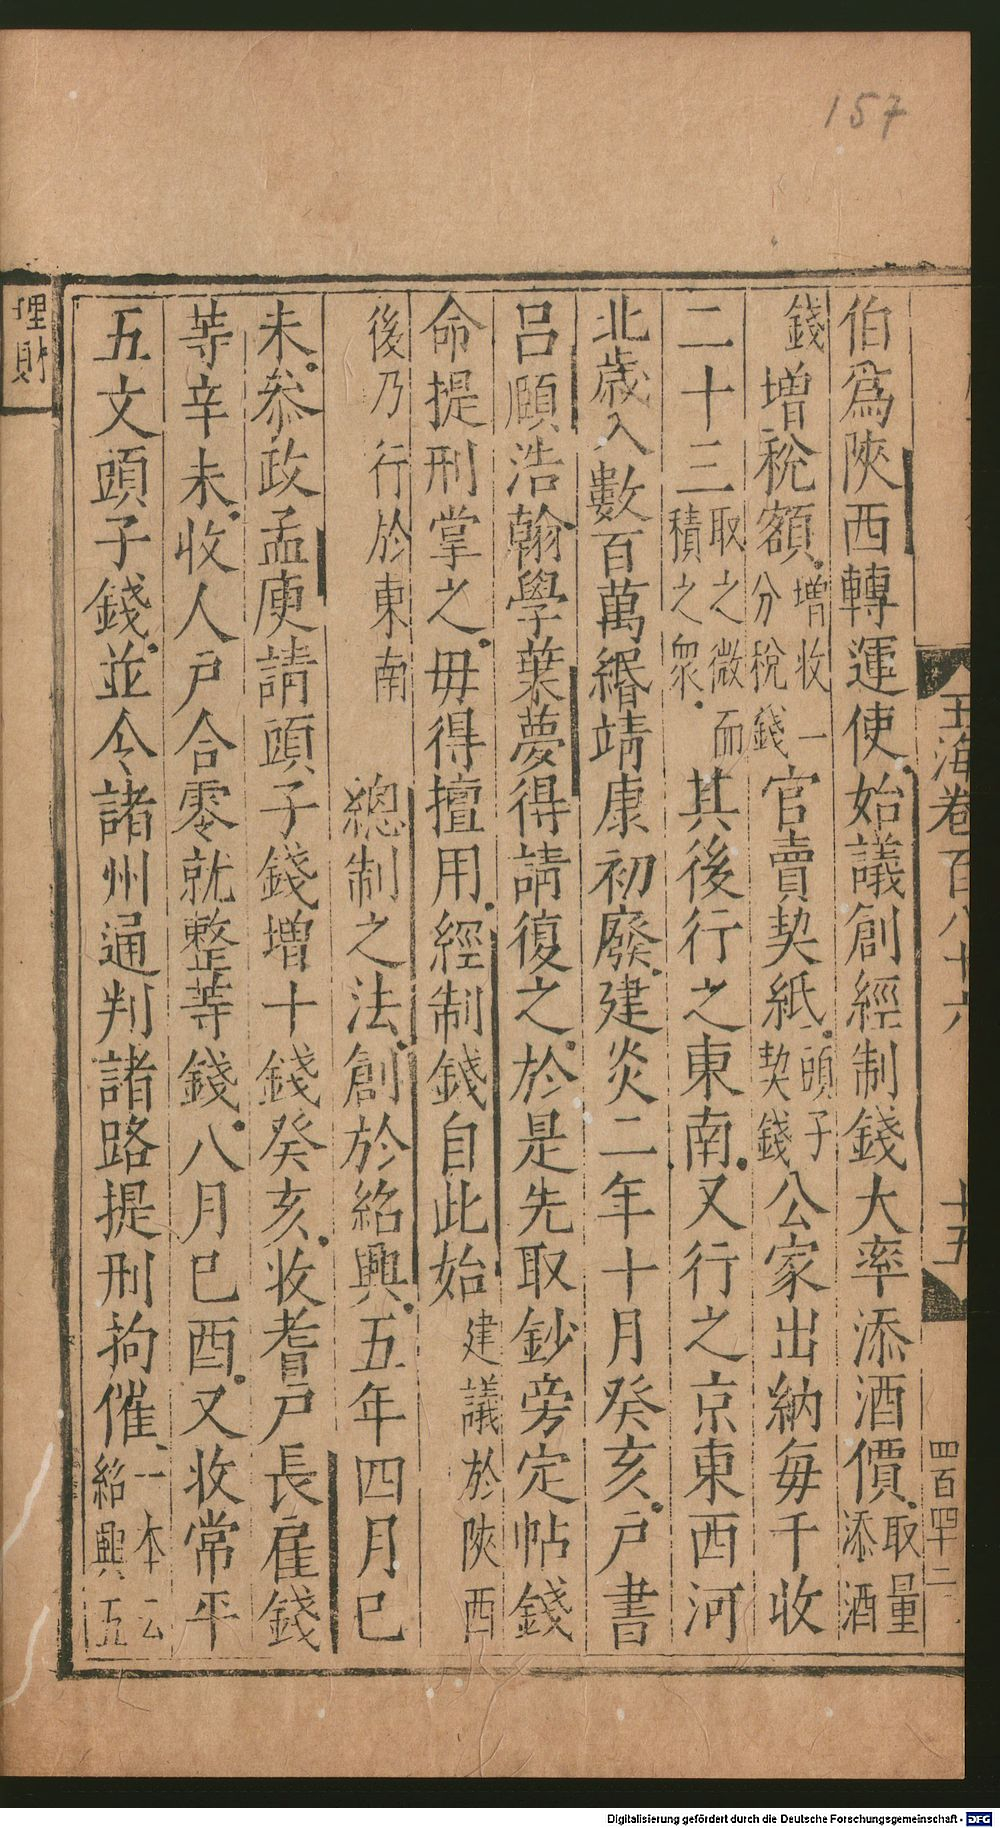 157
玉海卷百八十六
十五
四百四十二
伯爲陜西轉運使始議創經制錢大率添酒價取量添酒
錢增稅額增收一分稅錢官賣契紙頭子契錢公家出納每千收
二十三取之微而積之衆其後行之東南又行之京東西河
北歲入數百萬緡靖康初廢建炎二年十月癸亥戶書
呂頤浩翰學葉夢得請復之於是先取鈔旁定帖錢
命提刑掌之毋得擅用經制錢自此始建議於陜西
後乃行於東南總制之法創於紹興五年四月已
未叅政孟庾請頭子錢增十錢癸亥收耆戶長雇錢
等辛未收人戶合零就整等錢八月已酉又收常平
五文頭子錢並令諸州通判諸路提刑拘催一本云紹興五
理財
Digitalisierung gefördert durch die Deutsche Forschungsgemeinschaft - DFG